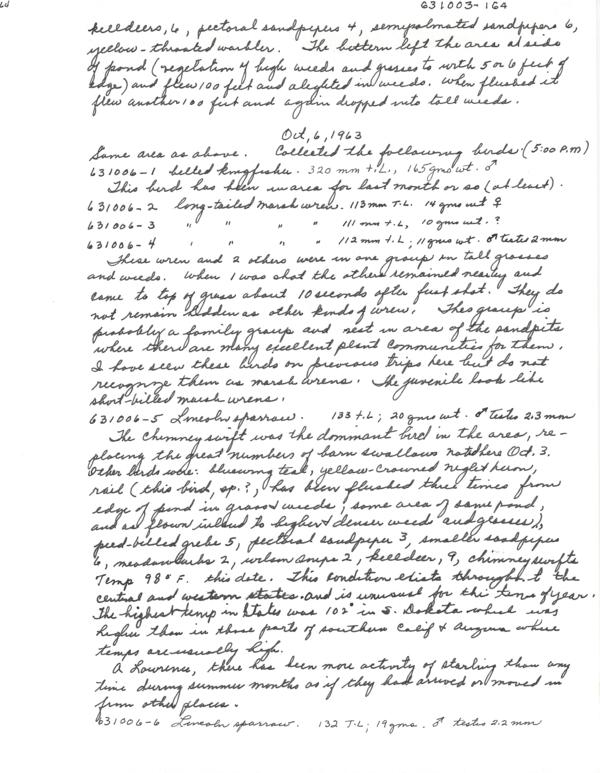 631003-164
killdeers, 6, pectoral sandpipers 4, semipalmated sandpipers 6,
yellow-throated warbler. The bittern left the area at side
of pond (vegetation of high weeds and grasses to with 5 or 6 feet of
edge) and flew 100 feet and alighted in weeds. When flushed it
flew another 100 feet and again dropped into tall weeds.
Oct, 6, 1963
Same area as above. Collected the following birds. (5:00 P.M)
631006-1 belled kingfisher. 320 mm t.L., 165 gms wt. ♂
This bird has been in area for last month or so (at least).
631006-2 long-tailed marsh wren. 113 mm T.L. 14 gms wt ♀
631006-3 " " " " 111 mm t.L, 10 gms wt. ?
631006-4 " " " " 112 mm t.L; 11 gms wt. ♂ testes 2 mm
These wren and 2 others were in one group in tall grasses
and weeds. When 1 was shot the others remained nearby and
came to top of grass about 10 seconds after first shot. They do
not remain hidden as other kinds of wren. This group is
probably a family group and nest in area of the sandpits
where there are many excellent plant communities for them.
I have seen these birds on previous trips here but do not
recognize them as marsh wrens. The juvenile look like
short-billed marsh wrens.
631006-5 Lincoln sparrow. 133 t.L; 20 gms wt. ♂ testes 2.3 mm
The chimney swift was the dominant bird in the area, re-
placing the great numbers of barn swallows noted here Oct. 3.
Other birds were: bluewing teal, yellow-crowned night heron,
rail (this bird, sp.?, has been flushed three times from
edge of pond in grass & weeds; same area of same pond,
and as flown inland to higher & denser weeds and grasses),
pied-billed grebe 5, pectoral sandpiper 3, smaller sandpipers
6, meadowlarks 2, wilson snipe 2, killdeer, 9, chimney swifts
Temp 98° F. this date. This condition exists throughout the
central and western states and is unusual for this time of year.
The highest temp in States was 102° in S. Dakota which was
higher than in those parts of southern Calif & Arizona where
temps are usually high.
A Lawrence, there has been more activity of starling than any
time during summer months as if they had arrived or moved in
from other places.
631006-6 Lincoln sparrow. 132 T.L; 19 gms. ♂ testes 2.2 mm